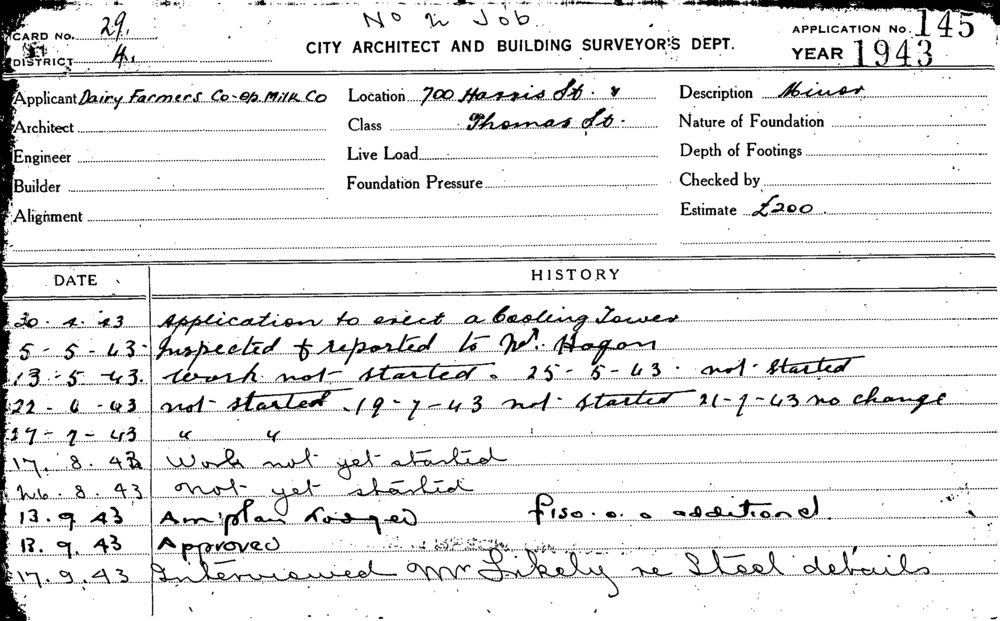 No in Job
CARD No. 29.
DISTRICT 4.
CITY ARCHITECT AND BUILDING SURVEYOR'S DEPT.
APPLICATION No. 145
YEAR 1943
Applicant Dairy Farmers Co-op. Milk Co Location 700 Harris St. & Description Minor
Architect Class Thomas St. Nature of Foundation
Engineer Live Load Depth of Footings
Builder Foundation Pressure Checked by
Alignment Estimate £200
DATE HISTORY
30. 4. 43 Application to erect a Cooling Tower
5-5-43- Inspected & reported to Mr. Hogan
13-5-43. Work not started. 25-5-43. not started
22-6-43 not started. 19-7-43 not started 21-7-43 no change
27-7-43 " "
17. 8. 43 Work not yet started
26. 8. 43 not yet started
13. 9. 43 Am' plan Lodged £150. 0. 0 additional.
13. 9. 43 Approved
17. 9. 43 Interviewed Mr Likely re Steel details